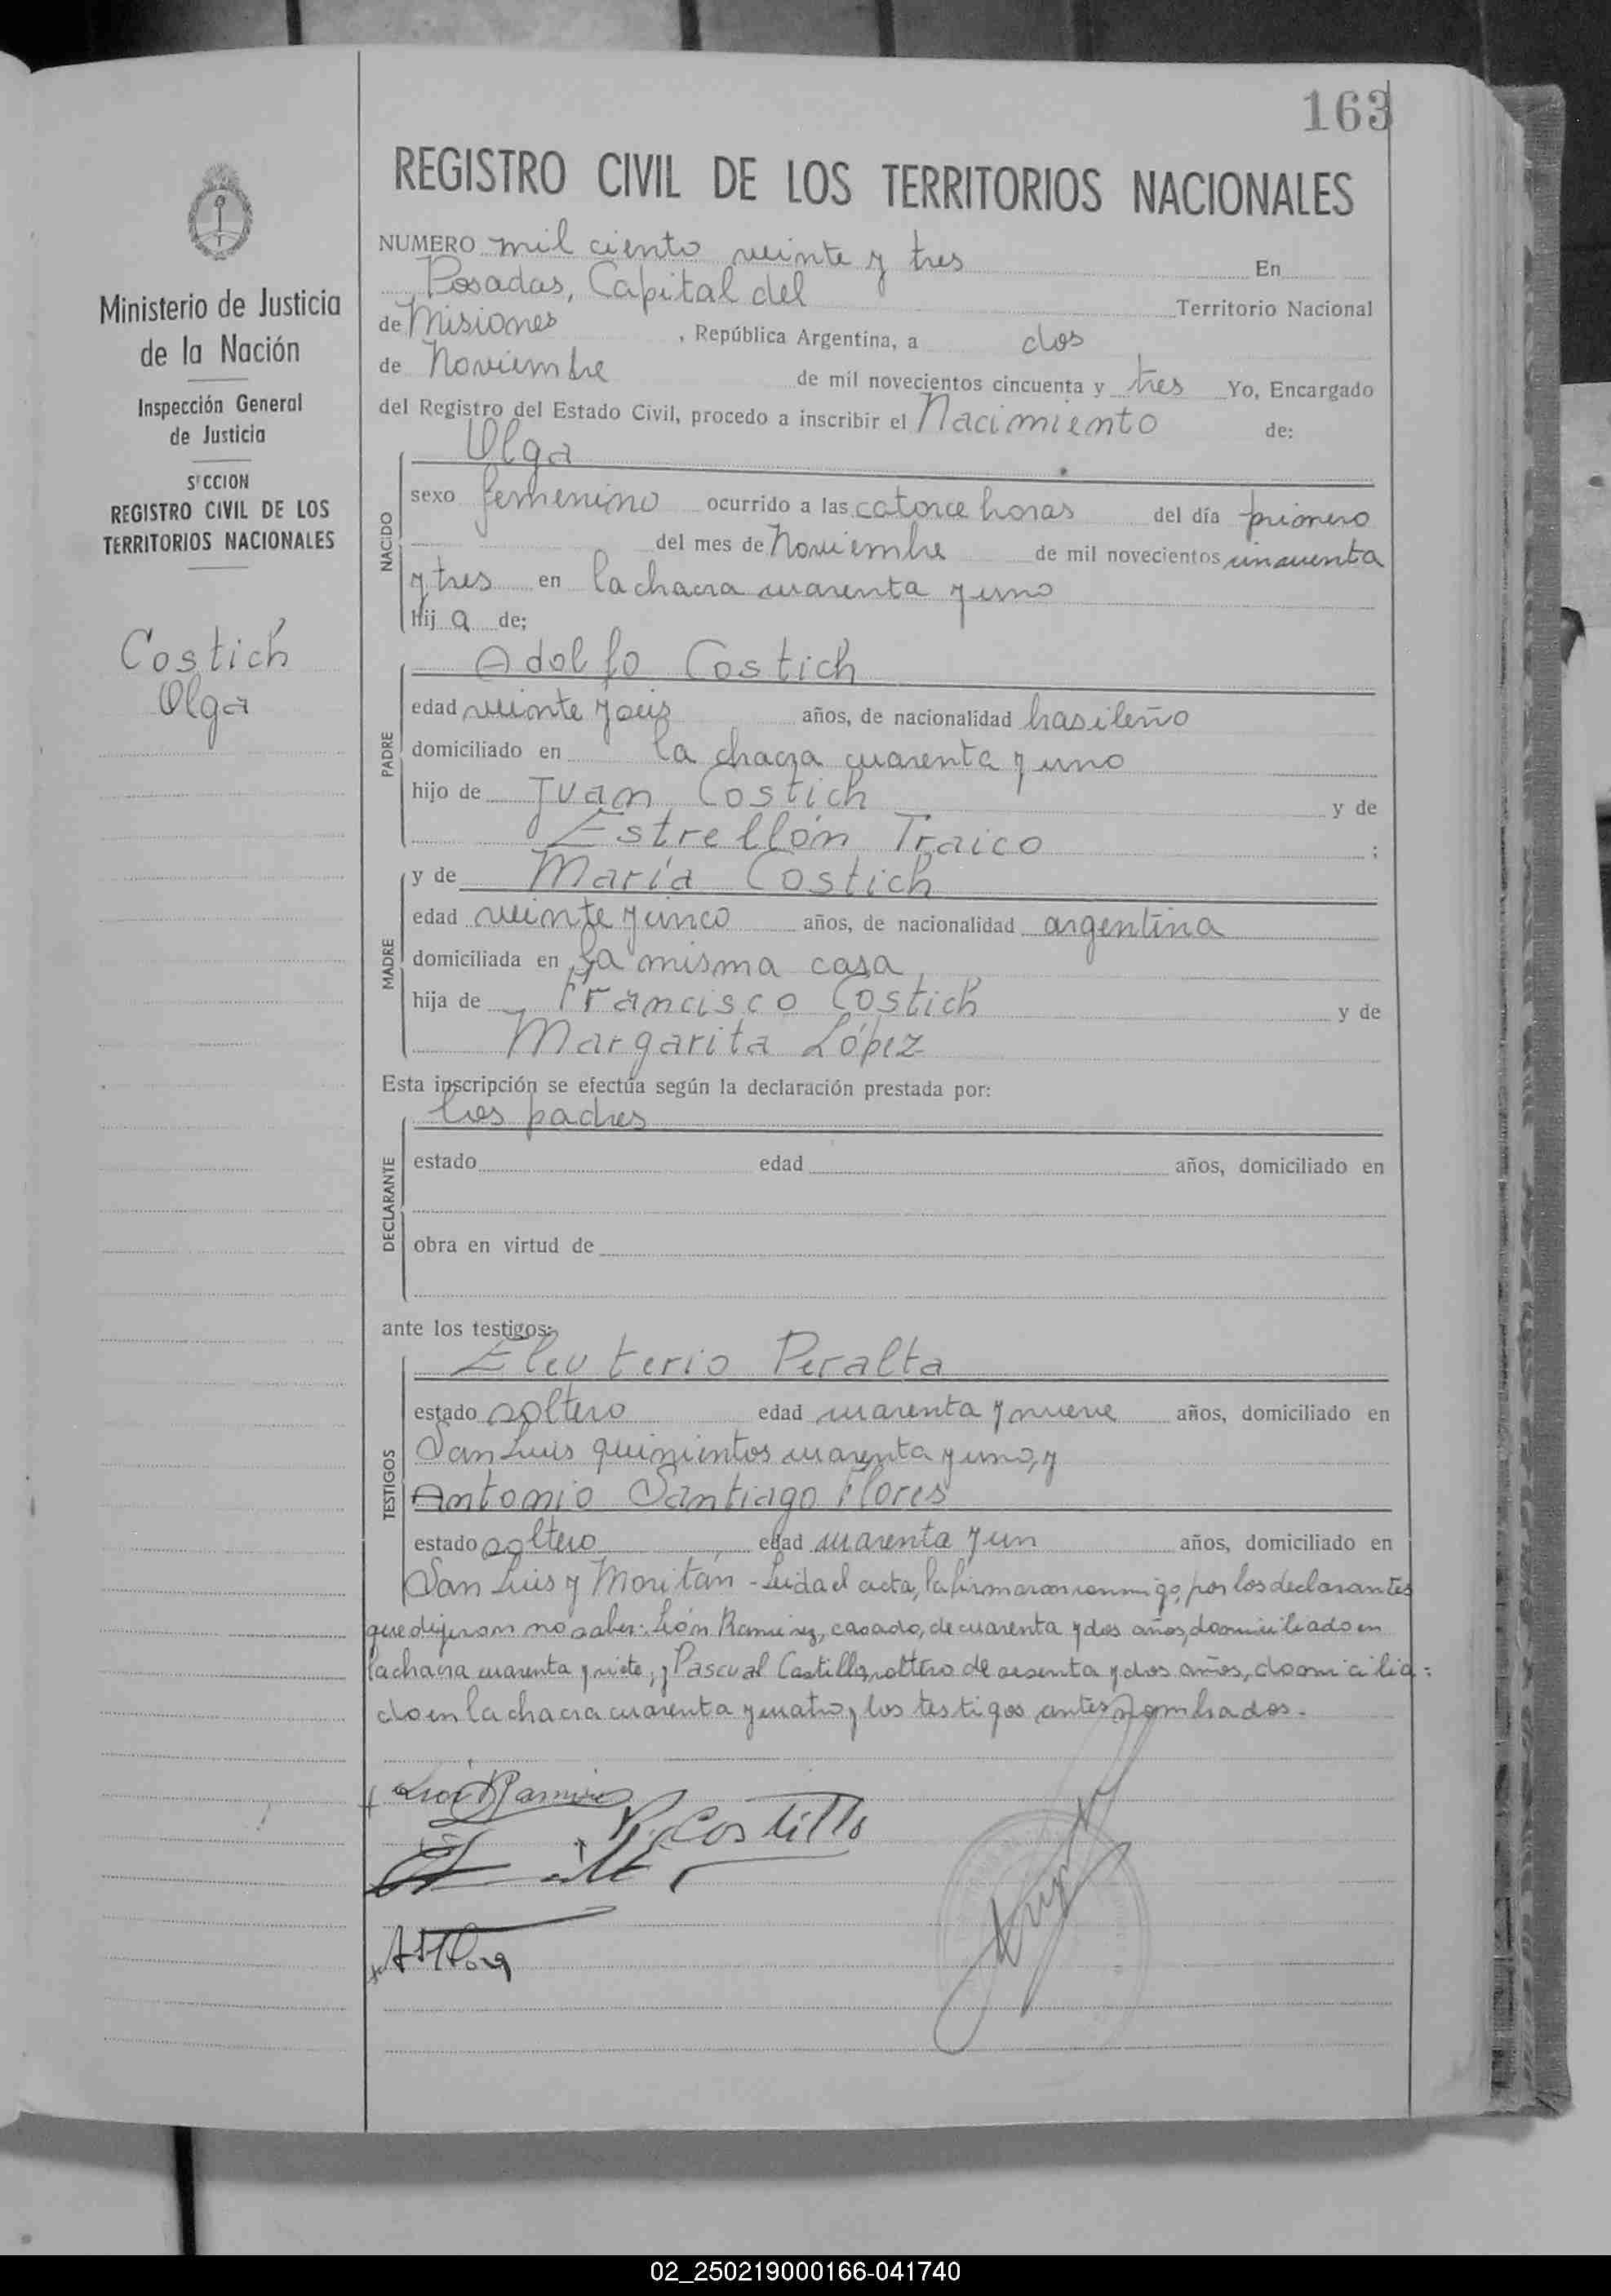 163
REGISTRO CIVIL DE LOS TERRITORIOS NACIONALES
NUMERO mil ciento veinte y tres En
Posadas, Capital del Territorio Nacional
de Misiones, República Argentina, a dos
de Noviembre de mil novecientos cincuenta y tres Yo, Encargado
del Registro del Estado Civil, procedo a inscribir el Nacimiento de:
Olga
NACIDO
sexo femenino ocurrido a las catorce horas del día primero
del mes de Noviembre de mil novecientos cincuenta
y tres en la chacra cuarenta y uno
Hij a de:
Adolfo Costich
PADRE
edad veinte y seis años, de nacionalidad brasileño
domiciliado en la chacra cuarenta y uno
hijo de Juan Costich y de
Estrellón Traico ;
y de María Costich
MADRE
edad veinte y cinco años, de nacionalidad argentina
domiciliada en la misma casa
hija de Francisco Costich y de
Margarita López
Esta inscripción se efectúa según la declaración prestada por:
los padres
DECLARANTE
estado edad años, domiciliado en
obra en virtud de
ante los testigos:
Eleuterio Peralta
TESTIGOS
estado soltero edad cuarenta y nueve años, domiciliado en
San Luis quinientos cuarenta y uno, y
Antonio Santiago Flores
estado soltero edad cuarenta y un años, domiciliado en
San Luis y Moritán - Leida el acta, la firmaron conmigo, por los declarantes
que dijeron no saber: León Ramirez, casado, de cuarenta y dos años, domiciliado en
la chacra cuarenta y siete, y Pascual Castillo, soltero de sesenta y dos años, domicilia=
do en la chacra cuarenta y cuatro, y los testigos antes nombrados.
León Ramirez
P. Costillo
Ministerio de Justicia
de la Nación
Inspección General
de Justicia
SECCION
REGISTRO CIVIL DE LOS
TERRITORIOS NACIONALES
Costich
Olga
02_250219000166-041740